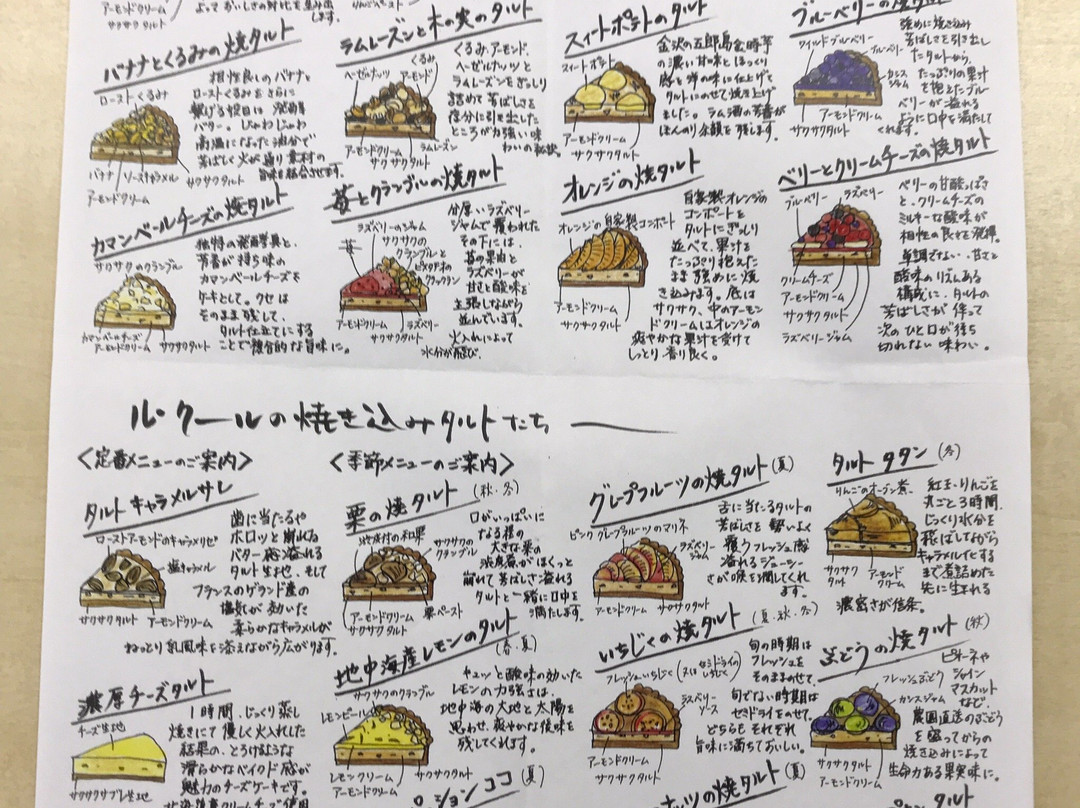 アーモンドクリーム
サクサクタルト
バナナとくるみの焼タルト
ローストくるみ
バナナ
ソースキャラメル
アーモンドクリーム
サクサクタルト
相性良しのバナナと
ローストくるみをさらに
繋げる役目は 発酵
バター。じゅわじゅわ
高温になった油分で
芳ばしく火が通り素材の
旨味を結合させます。
ラムレーズンと木の実のタルト
ヘーゼルナッツ
くるみ
アーモンド
アーモンドクリーム
サクサクタルト
ラムレーズン
くるみ、アーモンド、
ヘーゼルナッツと
ラムレーズンをぎっしり
詰めて芳ばしさを
存分に引き出した
ところが力強い味
わいの秘訣
スイートポテトのタルト
スイートポテト
アーモンドクリーム
サクサクタルト
金沢の五郎島金時芋
の濃い甘味とほっくり
感を洋の味に仕上げて
タルトにのせて焼き上げ
ました。ラム酒の芳香が
ほんのり余韻を残します。
ブルーベリーの焼タルト
ワイルドブルーベリー
ブルーベリー
カシス
ジャム
アーモンドクリーム
サクサクタルト
強めに焼き込み
芳ばしさを引き出し
たタルトから、
たっぷりの果汁
を抱えたブルー
ベリーが溢れる
ように口中を満たして
くれます。
カマンベールチーズの焼タルト
サクサクのクランブル
カマンベールチーズ
アーモンドクリーム
サクサクタルト
独特の発酵臭と、
芳香が持ち味の
カマンベールチーズを
ケーキとして。クセは
そのまま残して、
タルト仕立てにする
ことで魅力的な旨味に。
苺とクランブルの焼タルト
ラズベリーのジャム
サクサクの
クランブルと
ピスタチオの
クラックラン
苺
アーモンドクリーム
ラズベリー
サクサクタルト
分厚いラズベリー
ジャムで覆われた
その下には、
苺の果肉と
ラズベリーが
甘さと酸味を
主張しながら
並んでいます。
火入れによって
水分が飛び、
オレンジの焼タルト
オレンジの自家製コンポート
アーモンドクリーム
サクサクタルト
自家製オレンジの
コンポートを
タルトにぎっしり
並べて、果汁を
たっぷり抱えた
まま強めに焼
き込みます。底は
サクサク、中のアーモン
ドクリームはオレンジの
爽やかな果汁を受けて
しっとり香り良く。
ベリーとクリームチーズの焼タルト
ブルーベリー
ラズベリー
クリームチーズ
アーモンドクリーム
サクサクタルト
ラズベリージャム
ベリーの甘酸っぱさ
と、クリームチーズの
ミルキーな酸味が
相性の良さを発揮。
単調でない、甘さと
酸味のりえんある
構成に、タルトの
芳ばしさが伴って
次のひと口が待ち
切れない味わい。
ル・クールの焼き込みタルトたち
〈定番メニューのご案内〉
タルトキャラメルサレ
ローストアーモンドのキャラメリゼ
塩キャラメル
サクサクタルト
アーモンドクリーム
歯に当たるや
ホロッと崩れる
バター感溢れる
タルト生地、そして
フランスのゲランド産の
塩気が効いた
柔らかなキャラメルが
ねっとり乳風味を添えながら広がります。
濃厚チーズタルト
チーズ生地
サクサクサブレ生地
1時間、じっくり蒸し
焼きにて優しく火入れした
結果の、とろけるような
滑らかなベイクド感が
魅力のチーズケーキです。
〈季節メニューのご案内〉
栗の焼タルト (秋・冬)
サクサクの
クランブル
アーモンドクリーム
栗ペースト
サクサクタルト
口がいっぱいに
なる程の
大きな栗の
渋皮煮がほくっと
崩れて芳ばしさ溢れる
タルトと一緒に口中を
満たします。
地中海産レモンのタルト
(春・夏)
サクサクのクランブル
レモンピール
レモンクリーム
サクサクタルト
アーモンドクリーム
キュッと酸味の効いた
レモンの力強さは、
地中海の大地と太陽を
思わせ、爽やかな後味を
残してくれます。
ココ (夏)
グレープフルーツの焼タルト (夏)
ピンクグレープフルーツのマリネ
ラズベリー
ジャム
アーモンドクリーム
サクサクタルト
舌に当たるタルトの
芳ばしさを勢いよく
覆うフレッシュ感
溢れるジューシー
さが喉を潤してくれ
ます。
いちじくの焼タルト (夏・秋・冬)
フレッシュいちじく (又はセミドライの
いちじく)
ラズベリー
ソース
アーモンドクリーム
サクサクタルト
旬の時期は
フレッシュを
そのままのせて、
旬でない時期は
セミドライをのせて。
どちらもそれぞれ
旨味に満ちておいしい。
ナッツの焼タルト (夏)
タルトタタン (冬)
りんごのオーブン煮
サクサク
タルト
アーモンド
クリーム
紅玉りんごを
丸ごと3時間、
じっくり水分を
飛ばしながら
キャラメル化する
まで煮詰めた
先に生まれる
濃密さが信条。
ぶどうの焼タルト (秋)
フレッシュぶどう
カシスジャム
サクサクタルト
アーモンドクリーム
ピオーネや
シャイン
マスカット
など、
農園直送のぶどう
を盛ってからの
焼き込みによって
生命力ある果実味に。